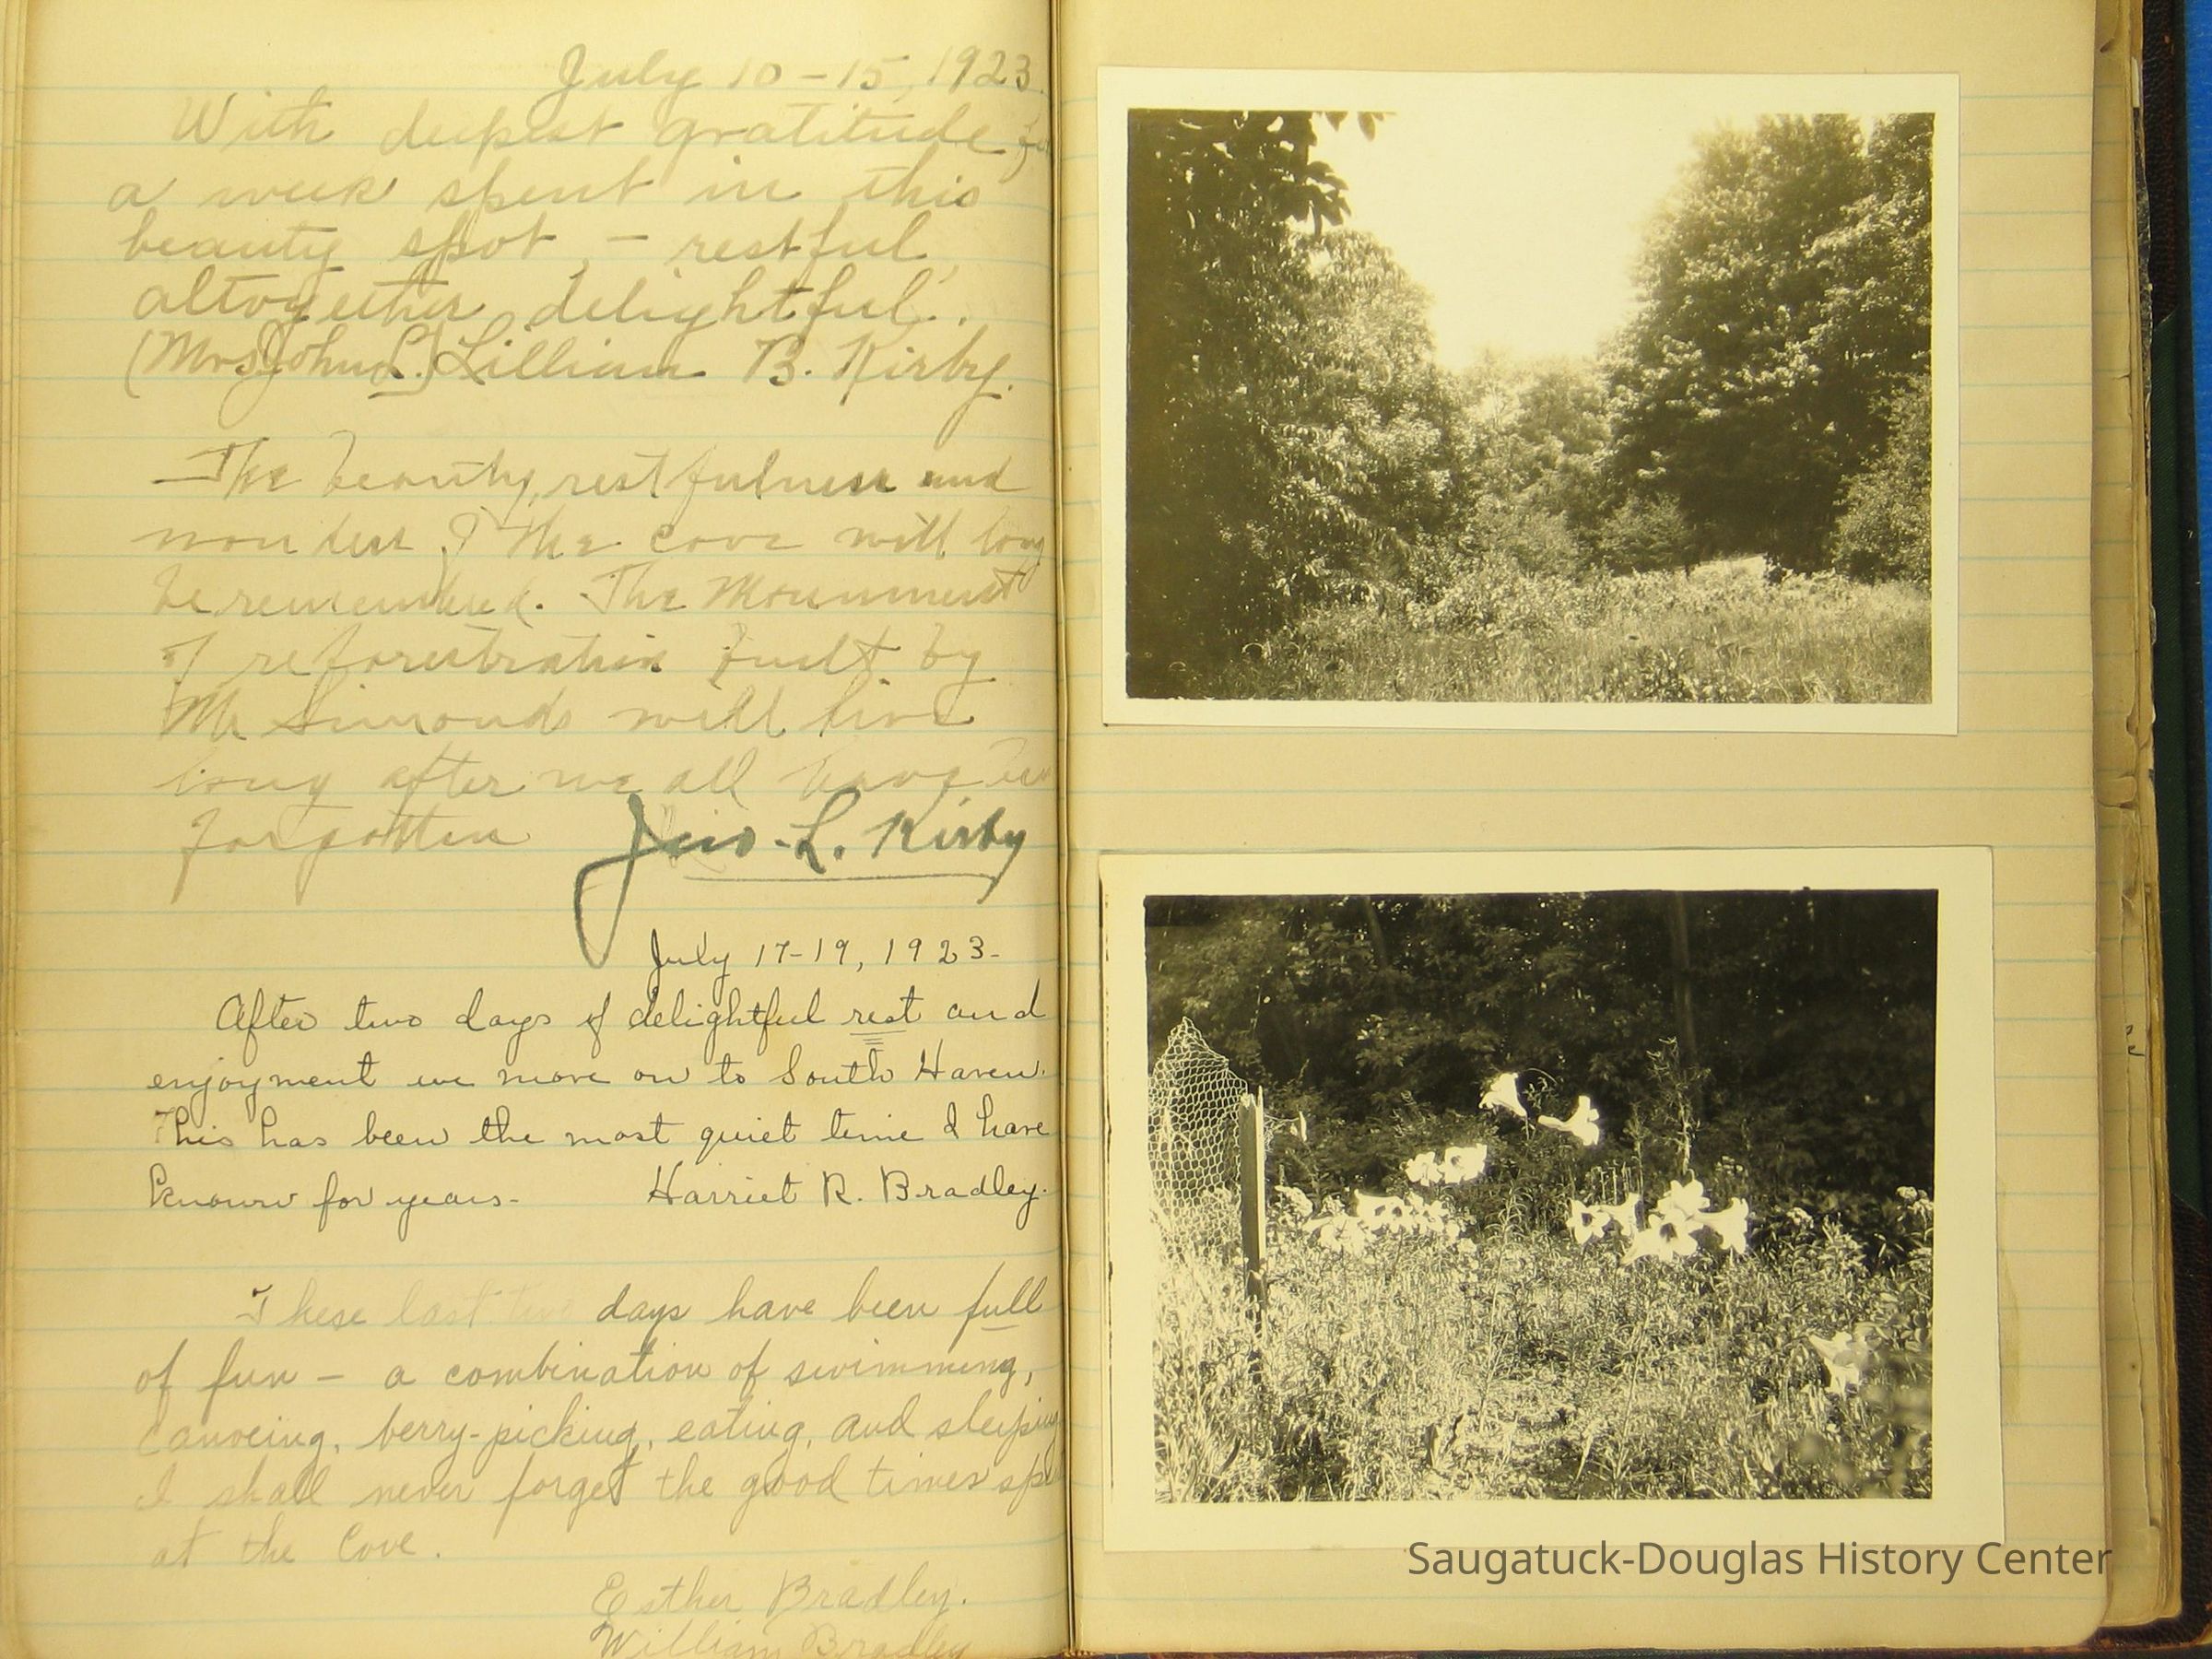 July 10-15, 1923.
With deepest gratitude for
a week spent in this
beauty spot, - restful,
altogether delightful.
(Mrs John L.) Lillian B. Kirby.
The beauty, restfulness and
wonders of the cove will long
be remembered. The Monument
of reforestration built by
Mr Simonds will live
long after we all have been
forgotten Jno. L. Kirby
July 17-19, 1923-
After two days of delightful rest and
enjoyment we move on to South Haven.
This has been the most quiet time I have
known for years- Harriet R. Bradley.
These last two days have been full
of fun - a combination of swimming,
canoeing, berry-picking, eating, and sleeping
I shall never forget the good times
at the Cove.
Esther Bradley.
William Bradley
Saugatuck-Douglas History Center